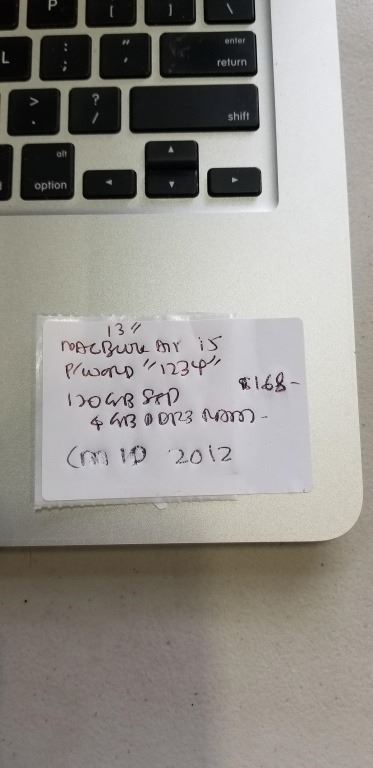 P { [ } ] | \
L : ; " ' enter return
> . ? / shift
alt option ◄ ▲ ▼ ►
13"
MACBOOK AIR i5
P/WORD "1234"
$168-
120GB SSD
4GB DDR3 RAM -
(MID 2012